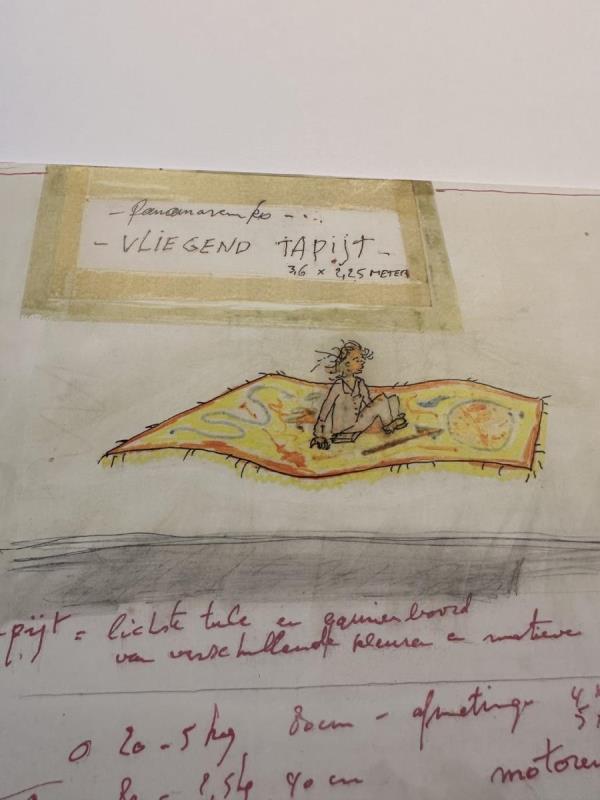 - Panamarenko - ...
- VLIEGEND TAPIJT -
3,6 x 2,25 METER
-pijt = lichte tule en
van verschillende kleuren e motieve
0 20 - 5 kg 80cm - afmetinge
80 - 2,5 kg 90 cm motoren